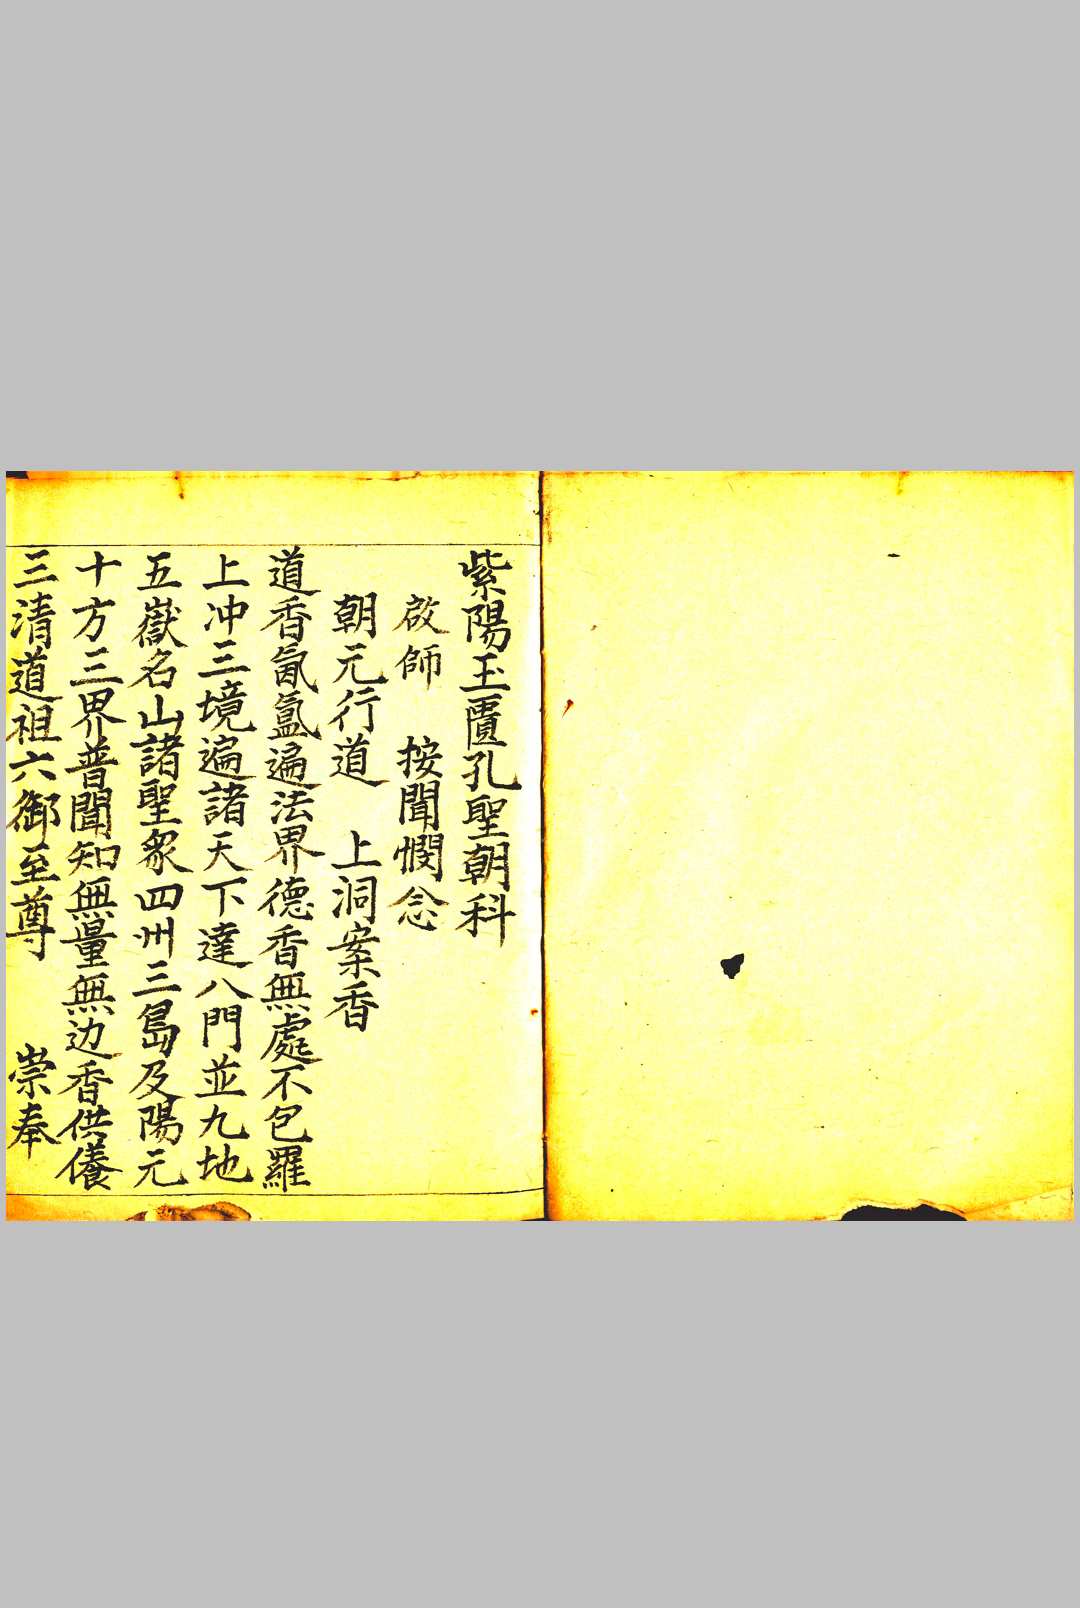 紫陽玉匱孔聖朝科
啟師　按聞憫念
朝元行道　上洞案香
道香氤氳遍法界德香無處不包羅
上冲三境遍諸天下達八門並九地
五嶽名山諸聖衆四州三島及陽元
十方三界普聞知無量無边香供養
三清道祖六御至尊　崇奉